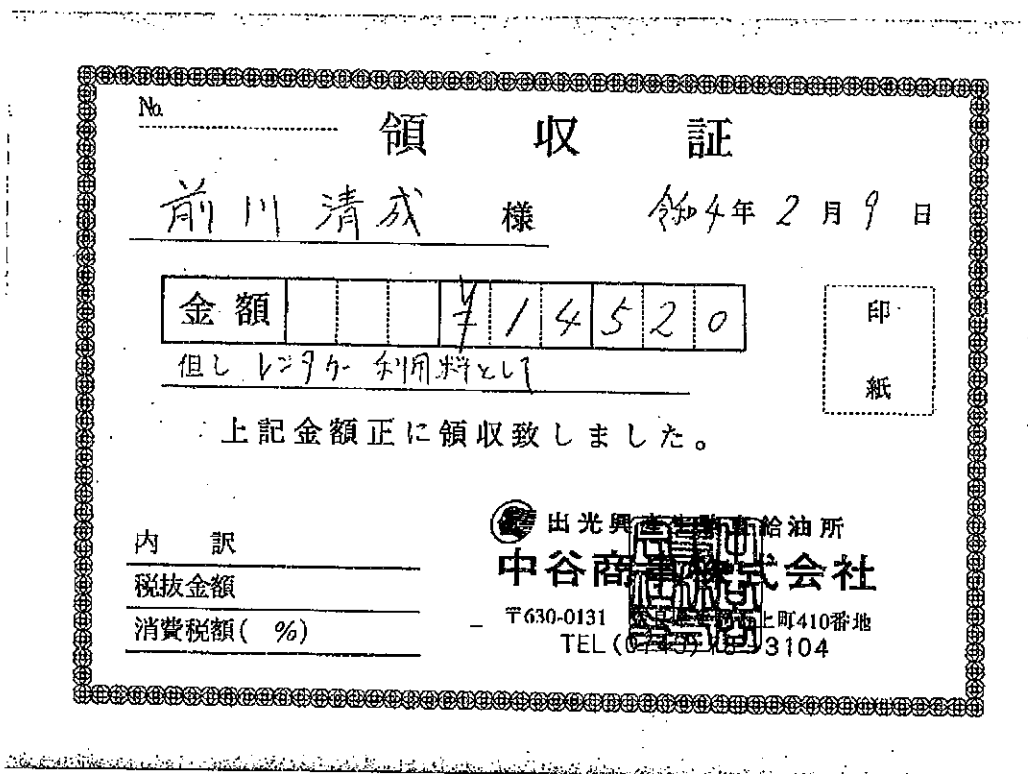 No.
領収証
前川清成 様 令和4年2月9日
金額 ¥14520
但し レンタカー利用料として
印紙
上記金額正に領収致しました。
内訳
税抜金額
消費税額( %)
出光興産 給油所
中谷商事株式会社
〒630-0131 上町410番地
TEL 3104